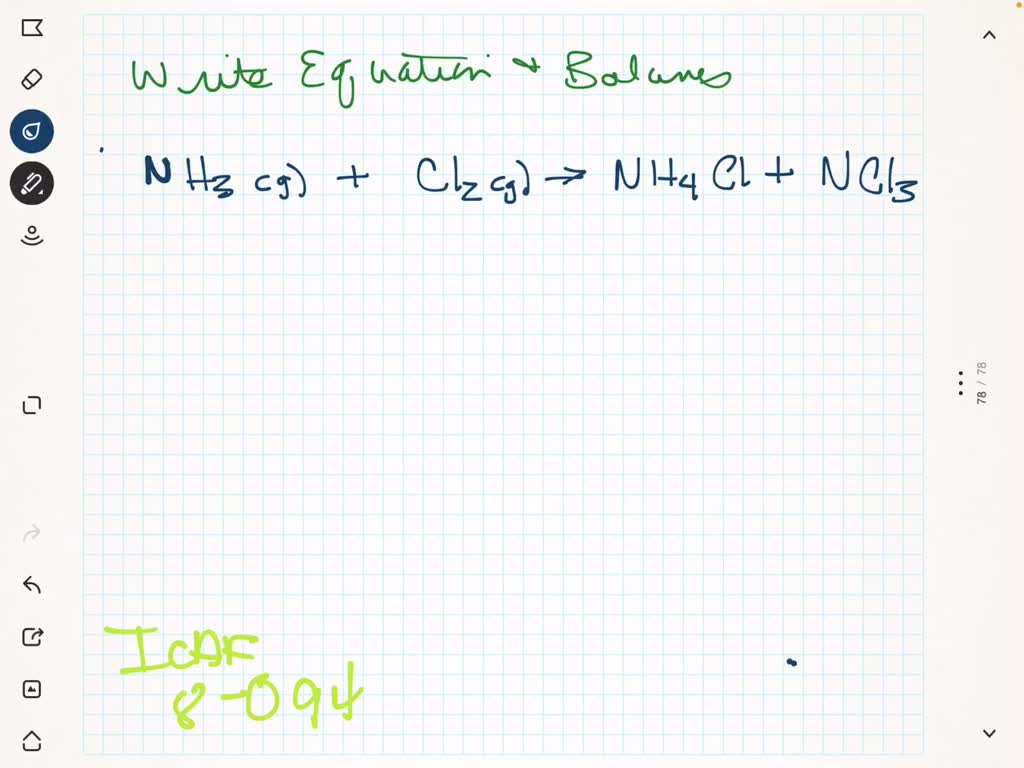 Write Equation & Balance
NH3 (g) + Cl2 (g) → NH4 Cl + NCl3
78 / 78
ICAF
8-094